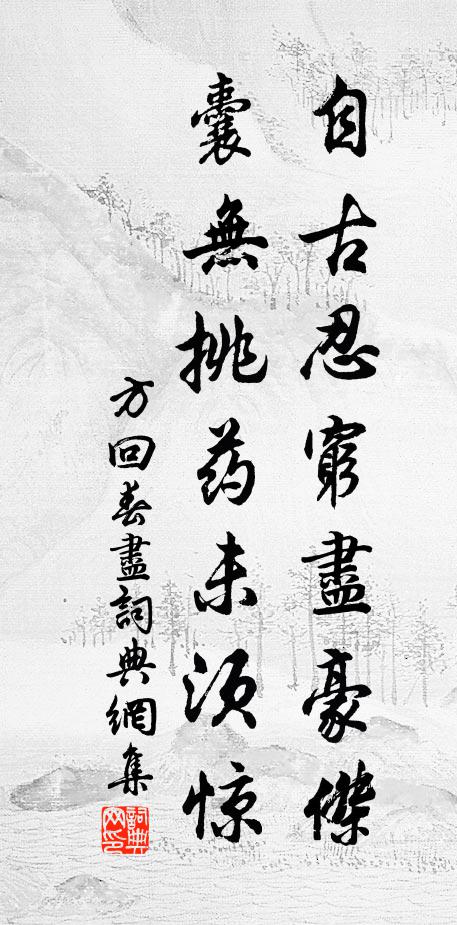 自古忍窮盡豪傑
囊無挑药未須惊
方回春盡詞典網集
詞典網印